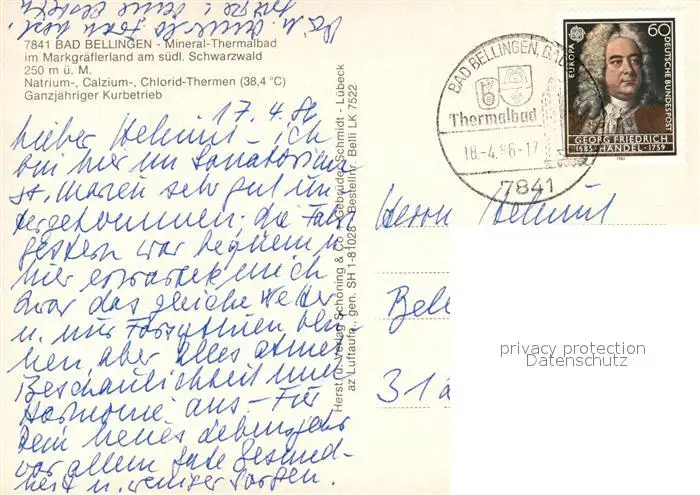 7841 BAD BELLINGEN - Mineral-Thermalbad
im Markgräflerland am südl. Schwarzwald
250 m ü. M.
Natrium-, Calzium-, Chlorid-Thermen (38,4 °C)
Ganzjähriger Kurbetrieb
17.4.86
Lieber Helmut - ich
bin hier im Sanatorium
St. Maren sehr gut un
tergekommen; die Fahrt
gestern war bequem u.
hier erwartete mich
zwar das gleiche Wetter
u. nur Forsythien blü-
hen, aber alles atmet
Beschaulichkeit und
Harmonie aus - Für
Dein neues Lebensjahr
vor allem gute Gesund-
heit u. weniger Sorgen.
Herst. u. Verlag Schöning & Co + Gebrüder Schmidt - Lübeck
az Luftaufn., gen. SH 1-81028 - Bestellnr. Belli LK 7522
BAD BELLINGEN,
Thermalbad
18.-4.86-17
7841
60
EUROPA
DEUTSCHE BUNDESPOST
GEORG FRIEDRICH
1685 · HÄNDEL · 1759
1985
Herrn Helmut
privacy protection
Datenschutz